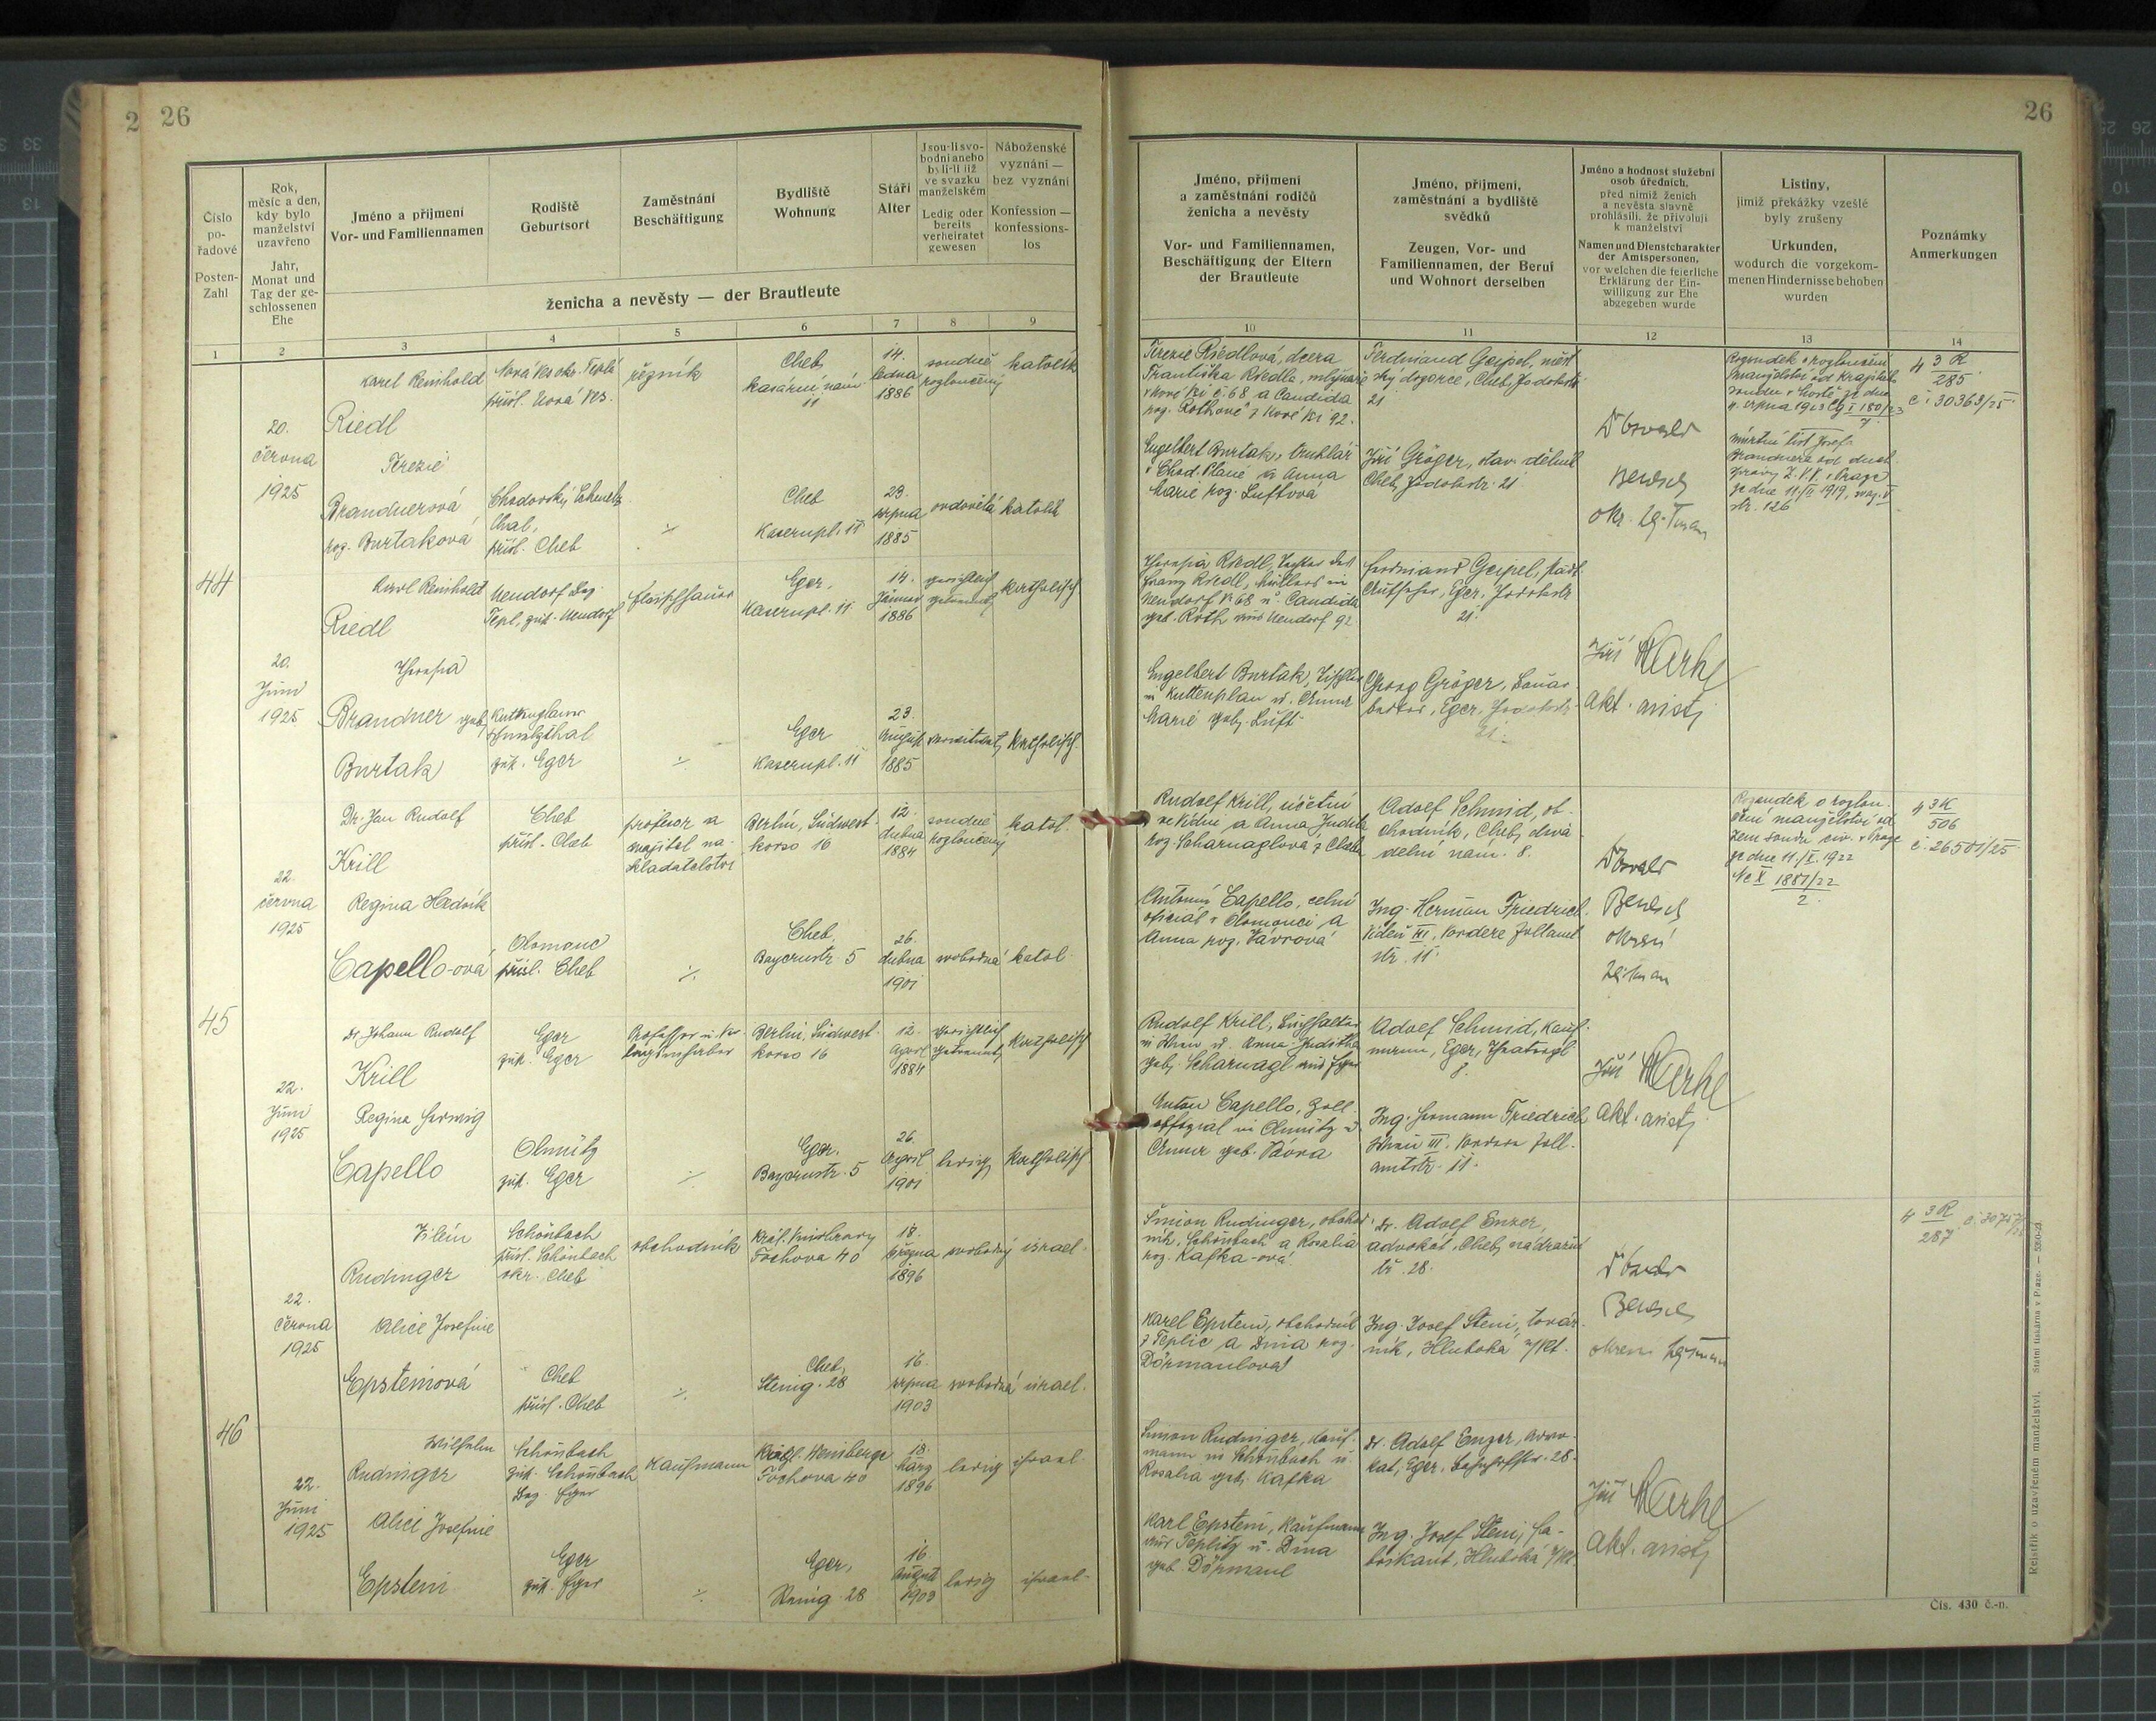 26
26
Číslo pořadové
Posten-Zahl
Rok, měsíc a den, kdy bylo manželství uzavřeno
Jahr, Monat und Tag der geschlossenen Ehe
Jméno a příjmení
Vor- und Familiennamen
Rodiště
Geburtsort
Zaměstnání
Beschäftigung
Bydliště
Wohnung
Stáří
Alter
Jsou-li svobodni anebo byli-li již ve svazku manželském
Ledig oder bereits verheiratet gewesen
Náboženské vyznání — bez vyznání
Konfession — konfessionslos
ženicha a nevěsty — der Brautleute
Jméno, příjmení a zaměstnání rodičů ženicha a nevěsty
Vor- und Familiennamen, Beschäftigung der Eltern der Brautleute
Jméno, příjmení, zaměstnání a bydliště svědků
Zeugen, Vor- und Familiennamen, der Beruf und Wohnort derselben
Jméno a hodnost služební osob úředních, před nimiž ženich a nevěsta slavně prohlásili, že přivolují k manželství
Namen und Dienstcharakter der Amtspersonen, vor welchen die feierliche Erklärung der Einwilligung zur Ehe abgegeben wurde
Listiny, jimiž překážky vzešlé byly zrušeny
Urkunden, wodurch die vorgekommenen Hindernisse behoben wurden
Poznámky
Anmerkungen
1 2 3 4 5 6 7 8 9 10 11 12 13 14
44
20. června 1925
Karel Reinhold
Riedl
Nová Ves okr. Teplá
přísl. Nová Ves.
řezník
Cheb
kasární nám. 11
14. ledna 1886
soudně rozloučený
katolík
Terezie Riedlová, dcera
Františka Riedla, mlynáře
v Nové Vsi č. 68 a Candida
roz. Rothové z Nové Vsi 92.
Ferdinand Geipel, měst
ský dozorce, Cheb, Jodokstr
21
Rozsudek o rozloučení
manželství od krajského
soudu v Chebu ze dne
srpna 1923 Cg I 180/23
7
4 3 R
285
č. 30363/25
Terezie
Brandnerová
roz. Burtaková
přísl. Cheb
Cheb
Kasernpl. 11
23. srpna 1885
ovdovělá
katolík
Engelbert Burtak, truhlář
v Chod. Plané a Anna
Marie roz. Luftová
Jiří Gröger, stav. dělník
Cheb, Jodokstr. 21
úmrtní list Josefa
Brandnera
ze dne 11/II 1919, svaz. V
str. 126
20. Juni 1925
Karl Reinhold
Riedl
Neudorf Bez.
Tepl, zust. Neudorf
Fleischhauer
Eger,
Kasernpl. 11
14. Jänner 1886
gerichtlich getrennt
katholisch
Theresia Riedl, Tochter des
Franz Riedl, Müllers in
Neudorf Nr 68 u. Candida
geb. Roth aus Neudorf 92
Ferdinand Geipel, städt.
Aufseher, Eger, Jodokstr
21.
Jiří
Akt. asist.
Theresia
Brandner geb.
Burtak
Kuttenplaner
Schmelzthal
zust. Eger
Eger
Kasernpl. 11
23. August 1885
verwitwet
katholisch.
Engelbert Burtak, Tischler
in Kuttenplan u. Anna
Marie geb. Luft
Georg Gröger, Bauar
beiter, Eger, Jodokstr.
21.
45
22. června 1925
Dr. Jan Rudolf
Krill
Cheb
přísl. Cheb
profesor a
majitel na-
kladatelství
Berlín, Südwest-
korso 16
12. dubna 1884
soudně rozloučený
katol.
Rudolf Krill, účetní
ve Vídni a Anna Judita
roz. Scharnaglová z Chebu
Adolf Schmid, ob-
chodník, Cheb, diva
delní nám. 8.
Rozsudek o rozlou-
čení manželství od
zem. soudu civ. v Praze
ze dne 11/X. 1922
Nc X 1881/22
2
4 3 K
506
č. 26501/25
Regina Hedvik
Capello-ová
Olomouc
přísl. Cheb
Cheb,
Bayernstr. 5
26. dubna 1901
svobodná
katol.
Antonín Capello, celní
oficiál v Olomouci a
Anna roz. Vávrová
Ing. Herman Friedrich
Vídeň III, Vordere Zollamt
str. 11.
22. Juni 1925
Dr. Johann Rudolf
Krill
Eger
zust. Eger
Professor u. Ver-
lagsinhaber
Berlin, Südwest-
korso 16
12. April 1884
gerichtlich getrennt
katholisch
Rudolf Krill, Buchhalter
in Wien u. Anna Juditha
geb. Scharnagl aus Eger
Adolf Schmid, Kauf-
mann, Eger, Theaterpl
8.
Jiří
Akt. asist.
Regina Hedwig
Capello
Olmütz
zust. Eger
Eger,
Bayernstr. 5
26. April 1901
ledig
katholisch
Anton Capello, Zoll-
offizial in Olmütz u.
Anna geb. Vávra
Ing. Hermann Friedrich
Wien III. Vordere Zoll-
amtstr. 11.
46
22. června 1925
Vilém
Rudinger
Schönbach
přísl. Schönbach
okr. Cheb
obchodník
Král. Vinohrady
Fochova 40
18. března 1896
svobodný
israel.
Šimon Rudinger, obchod-
ník, Schönbach a Rosalia
roz. Kafka-ová
Dr. Adolf Enzer,
advokát, Cheb, nádražní
tř. 28.
4 3 R
287
Alice Josefine
Epsteinová
Cheb
přísl. Cheb
Cheb,
Steing. 28
16. srpna 1903
svobodná
israel.
Karel Epstein, obchodník
z Teplic a Dina roz.
Ing. Josef Stein, továr-
ník, Hluboká n/Vlt.
22. Juni 1925
Wilhelm
Rudinger
Schönbach
zust. Schönbach
Bez. Eger
Kaufmann
Königl. Weinberge
Fochova 40
18. März 1896
ledig
israel.
Simon Rudinger, Kauf-
mann in Schönbach u.
Rosalia geb. Kafka
Dr. Adolf Enzer, Advo-
kat, Eger, Bahnhofstr. 28.
Jiří
Akt. asist.
Alice Josefine
Epstein
Eger
zust. Eger
Eger,
Steing. 28
16. August 1903
ledig
israel.
Karl Epstein, Kaufmann
aus Teplitz u. Dina
Ing. Josef Stein, Fa-
brikant, Hluboká n/Vlt
Rejstřík o uzavřeném manželství. Státní tiskárna v Praze. — 5350-23.
Čís. 430 č.-n.